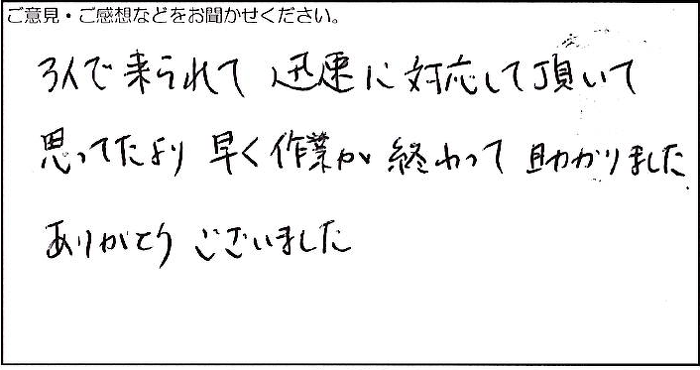 ご意見・ご感想などをお聞かせください。
3人で来られて 迅速に対応して頂いて
思ってたより 早く作業が 終わって 助かりました
ありがとう ございました